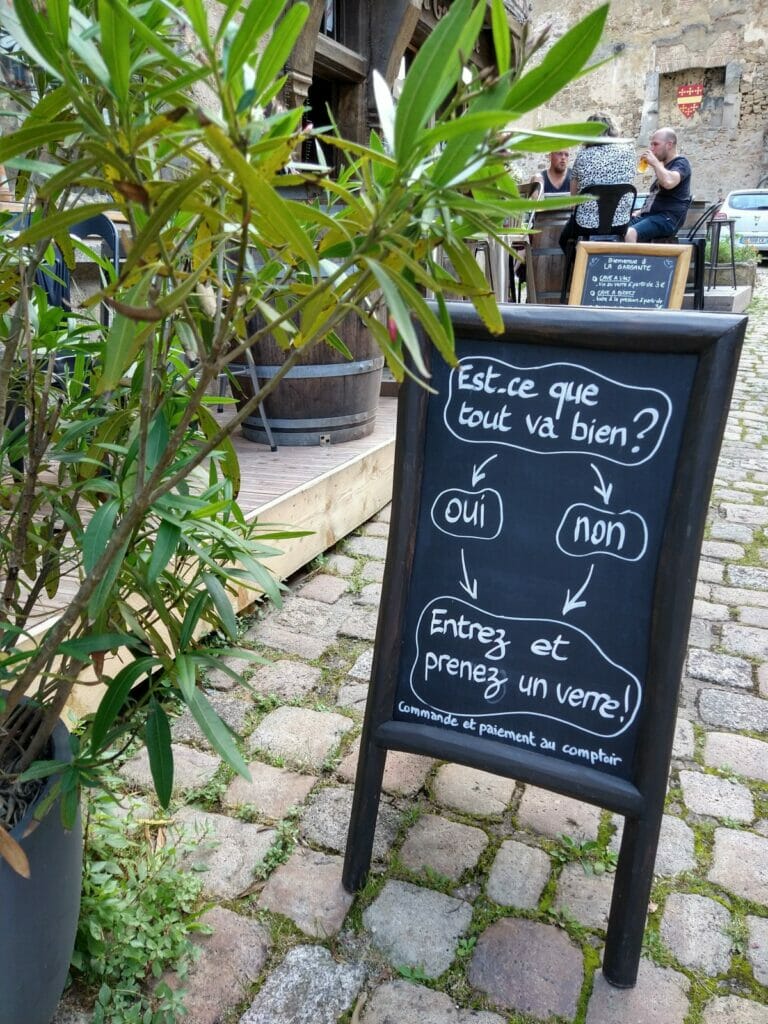 Bienvenue à
LA GARGANTE
CAVE A VINS
CAVE A BIERES
Est-ce que
tout va bien?
oui
non
Entrez et
prenez un verre!
Commande et paiement au comptoir